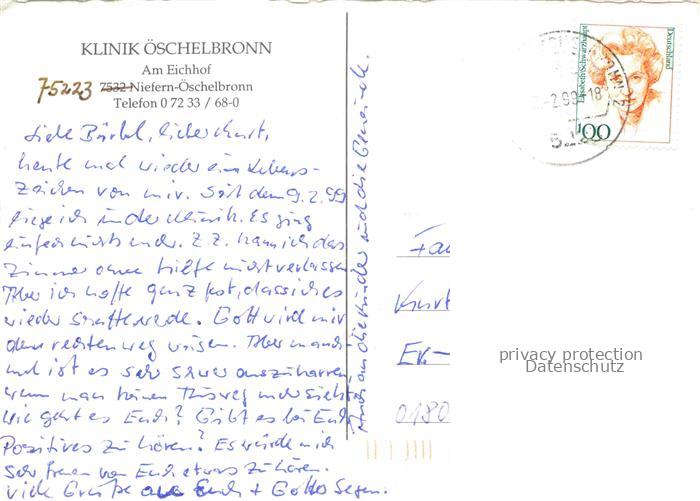 KLINIK ÖSCHELBRONN
Am Eichhof
75223 7532 Niefern-Öschelbronn
Telefon 0 72 33 / 68-0
Liebe Bärbel, lieber Kurt,
heute mal wieder ein Lebens-
zeichen von mir. Seit dem 9.2.99
liege ich in der Klinik. Es ging
einfach nichts mehr. Z.Z. kann ich das
Zimmer ohne Hilfe nicht verlassen
Aber ich hoffe ganz fest, dass ich es
wieder schaffe werde. Gott wird mir
den rechten weg weisen. Aber manch-
mal ist es sehr schwer auszuharren,
wenn man keinen Ausweg mehr sieht.
Wie geht es Euch? Gibt es bei Euch
Positives zu hören? Es würde mich
sehr freuen von Euch etwas zu hören.
Viele Grüße an Euch + Gottes Segen.
Auch an die Kinder und die Gemeinde.
Deutschland
Elisabeth Schwarzhaupt
100
2.99-18
52
Fa
Kurt
Ek-
0180
privacy protection
Datenschutz